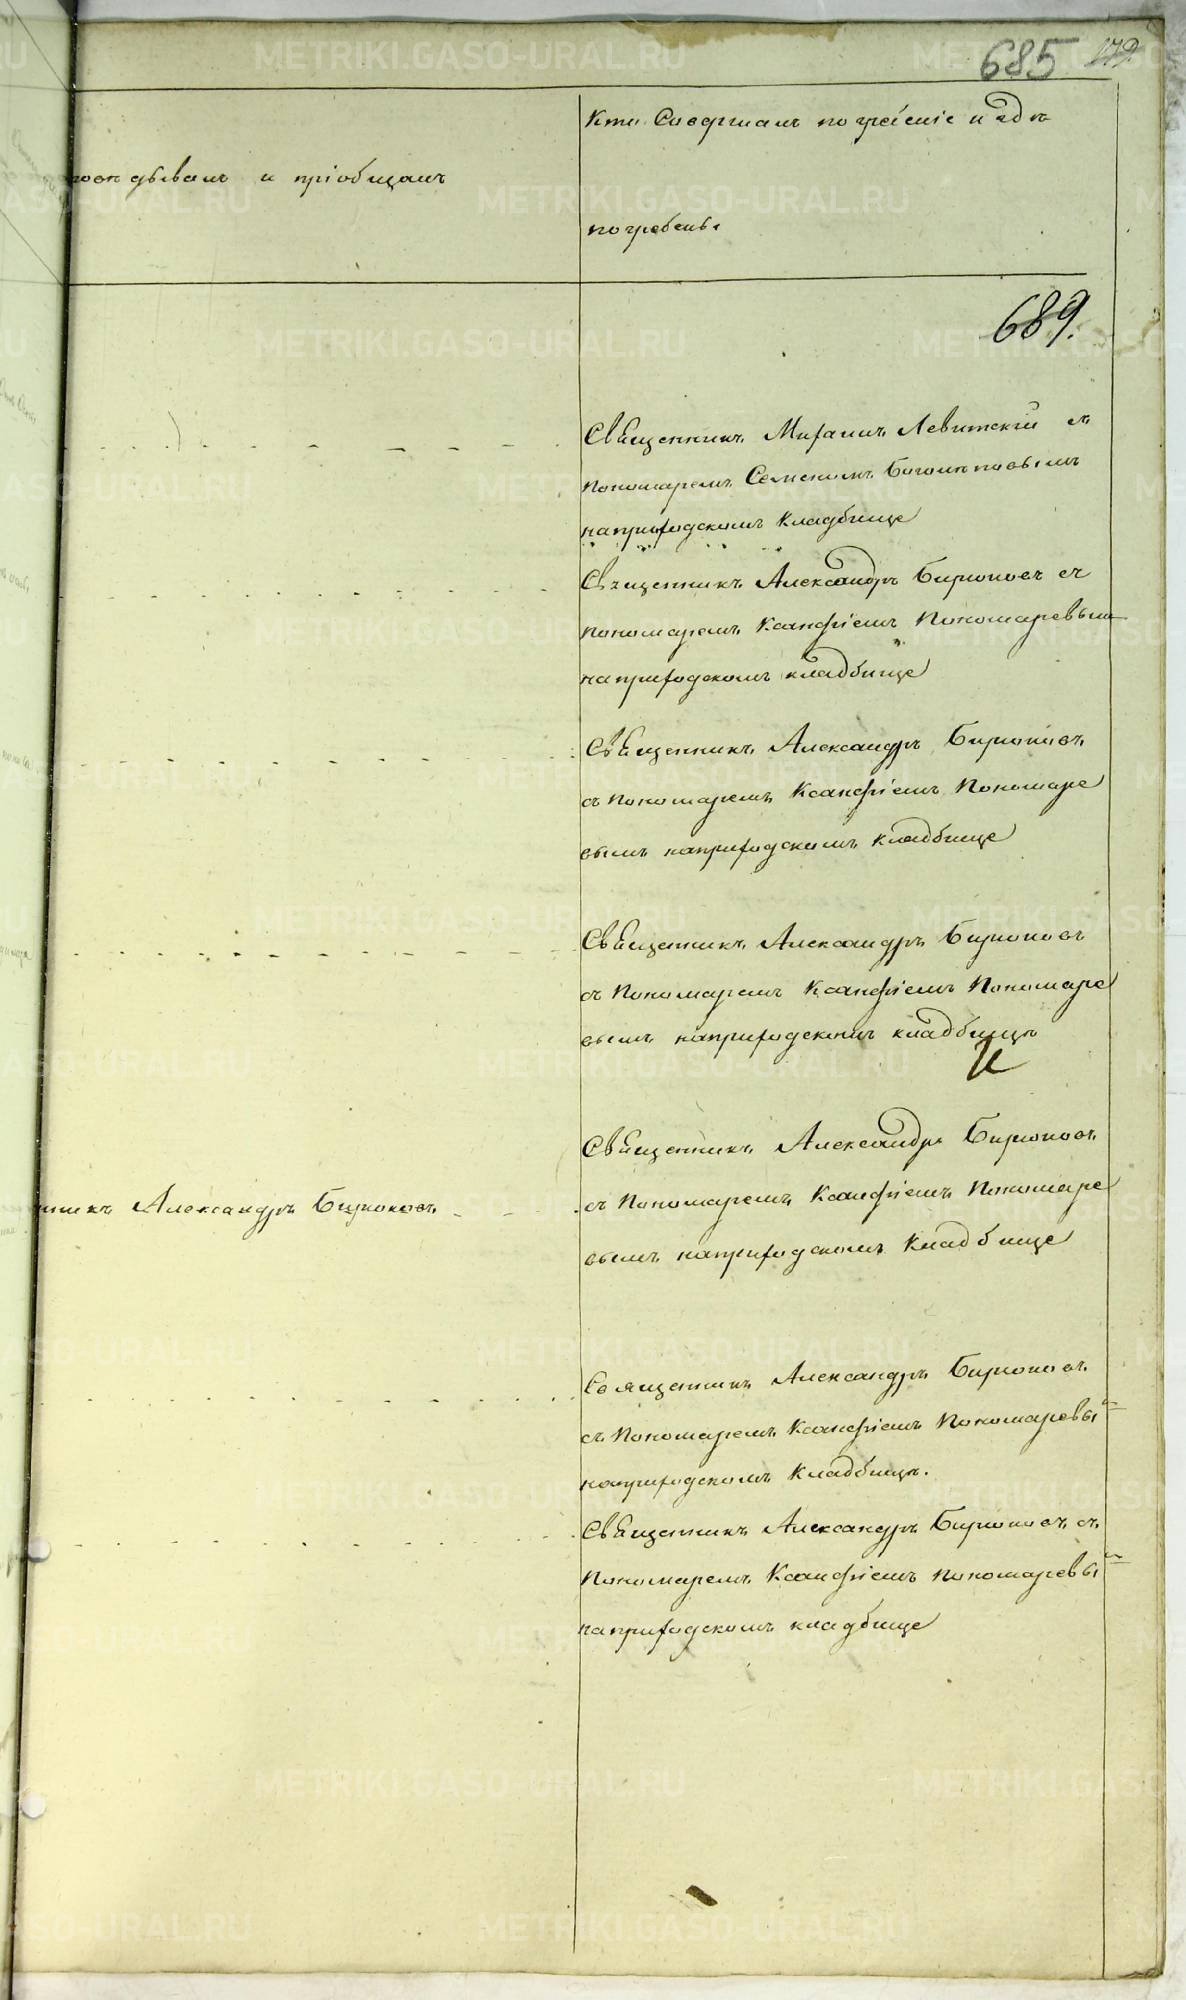 685 179
Кто Совершалъ погребеніе и гдѣ
повѣдывалъ и пріобщалъ
погребены
689.
Священникъ Михаилъ Левитскій съ
пономаремъ Семеномъ
наприходскомъ кладбище
Священникъ Александръ Бирюковъ съ
пономаремъ Ксанфіемъ Пономаревым
наприходскомъ кладбище
Священникъ Александръ Бирюковъ
съ Пономаремъ Ксанфіемъ Пономаре
вымъ наприходскомъ кладбище
Священникъ Александръ Бирюковъ
съ Пономаремъ Ксанфіемъ Пономаре
вымъ наприходскомъ кладбищѣ
Священникъ Александръ Бирюковъ
съ Пономаремъ Ксанфіемъ Пономаре
нникъ Александръ Бирюковъ
вымъ наприходскомъ Кладбище
Священникъ Александръ Бирюковъ
съ Пономаремъ Ксанфіемъ Пономаревы
наприходскомъ Кладбищѣ.
Священникъ Александръ Бирюковъ съ
Пономаремъ Ксанфіемъ Пономаревы
наприходскомъ кладбище
METRIKI.GASO-URAL.RU